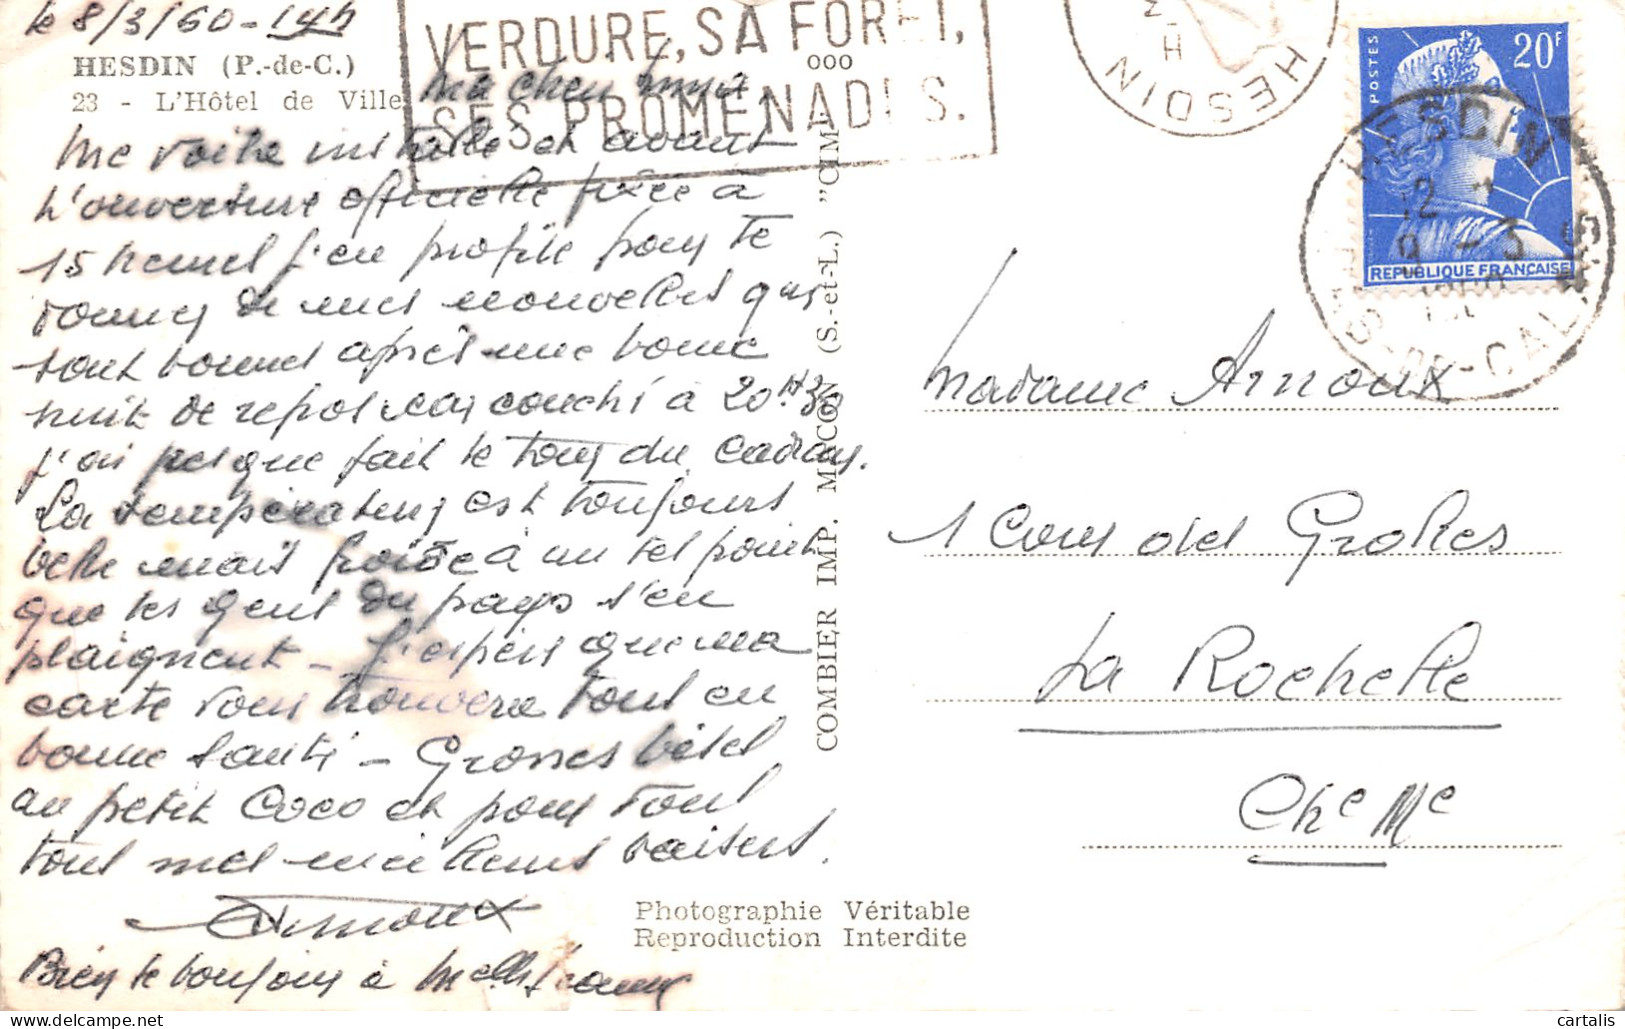 le 8/3/60 - 14h
HESDIN (P.-de-C.)
23 - L'Hôtel de Ville
VERDURE, SA FORET,
SES PROMENADES.
ooo
HESDIN
20F
POSTES
REPUBLIQUE FRANÇAISE
HESDIN
12 H
9 - 3
1960
PAS-DE-CALAIS
Ma chère
Me voilà installé et avant
L'ouverture officielle fixée à
15 heures j'en profite pour te
donner de mes nouvelles qui
sont bonnes après une bonne
nuit de repos car couché à 20H30
j'ai presque fait le tour du cadran.
La température est toujours
belle mais froide à un tel point
que les gens du pays s'en
plaignent - J'espère que ma
carte vous trouvera tous en
bonne santé - Grosses bises
au petit Coco et pour tous
tous mes meilleurs baisers.
Arnoux
Bien le bonjour à Melle Jeanne
COMBIER IMP. MACON (S.-et-L.) "CIM"
Madame Arnoux
1 Cours des
La Rochelle
Che Me
Photographie Véritable
Reproduction Interdite
cartalis